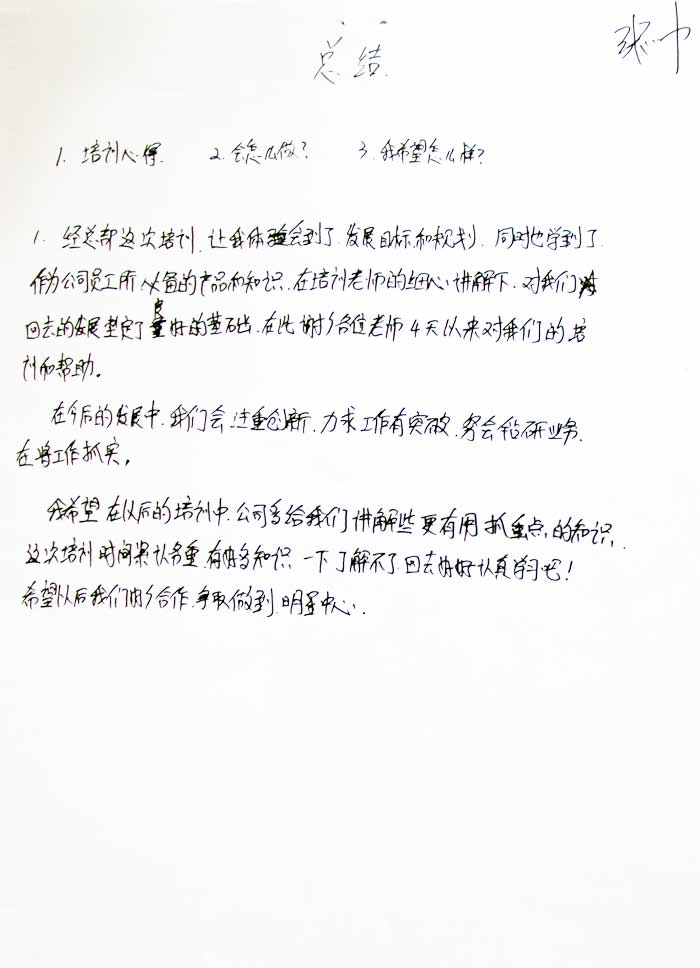 总结
1. 培训心得. 2. 会怎么做? 3. 我希望怎么样?
1. 经总部这次培训. 让我体验会到了. 发展目标和规划. 同时也学到了
作为公司员工所必备的产品和知识. 在培训老师的细心讲解下. 对我们
回去的发展垫定了良好的基础. 在此谢谢各位老师4天以来对我们的培
训和帮助。
在今后的发展中. 我们会注重创新. 力求工作有突破. 务会钻研业务.
在将工作抓实。
我希望在以后的培训中. 公司多给我们讲解些更有用抓重点. 的知识.
这次培训时间累认务重. 有好多知识. 一下了解不了. 回去好好认真学习吧!
希望以后我们的合作. 争取做到. 明星中心.